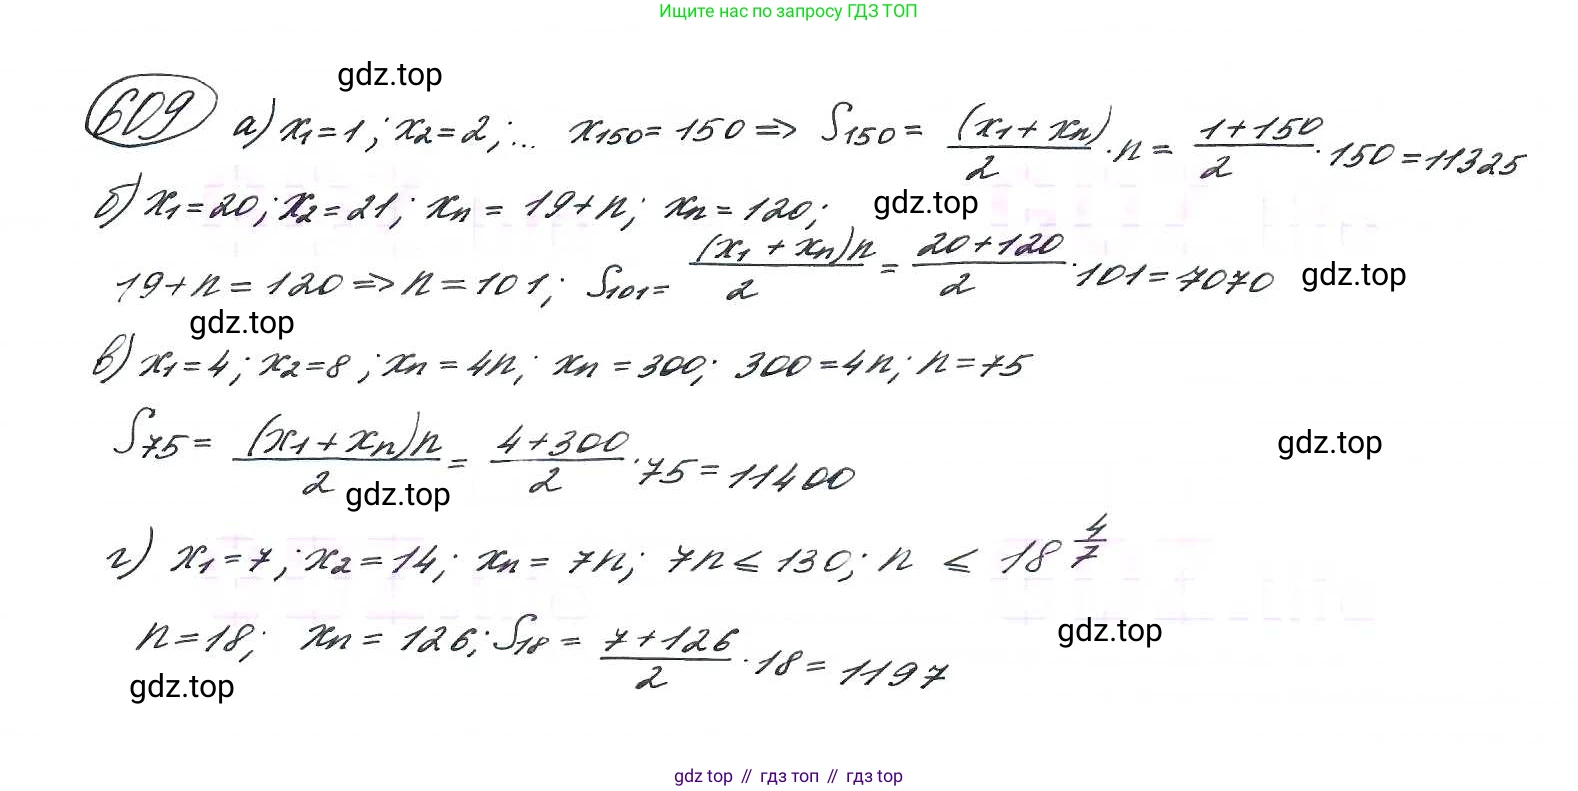 Ищите нас по запросу ГДЗ ТОП
gdz.top
609 а) x₁=1; x₂=2; ... x₁₅₀=150 => S₁₅₀ = (x₁+xₙ)/2 · n = (1+150)/2 · 150 = 11325
б) x₁=20; x₂=21; xₙ = 19+n; xₙ = 120;
gdz.top
19+n=120 => n=101; S₁₀₁ = (x₁+xₙ)n/2 = (20+120)/2 · 101 = 7070
gdz.top
gdz.top
в) x₁=4; x₂=8; xₙ=4n; xₙ=300; 300=4n; n=75
S₇₅ = (x₁+xₙ)n/2 = (4+300)/2 · 75 = 11400
gdz.top
gdz.top
г) x₁=7; x₂=14; xₙ=7n; 7n ≤ 130; n ≤ 18 4/7
n=18; xₙ=126; S₁₈ = (7+126)/2 · 18 = 1197
gdz.top
gdz.top
gdz top // гдз топ // гдз top